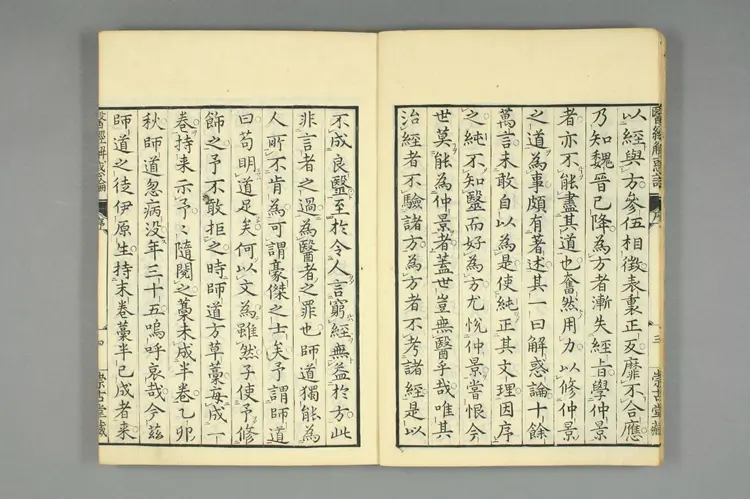 以經與方參伍相徵表裏正反靡不合應
乃知魏晉已降為方者漸失經旨學仲景
者亦不能盡其道也奮然用力以修仲景
之道為事頗有著述其一曰解惑論十餘
萬言未敢自以為是使純正其文理因序
之純不知醫而好為方尤悅仲景嘗恨今
世莫能為仲景者蓋世豈無醫乎哉唯其
治經者不驗諸方為方者不考諸經是以
不成良醫至於令人言窮經無益於方此
非言者之過為醫者之罪也師道獨能為
人所不肯為可謂豪傑之士矣予謂師道
曰苟明道足矣何以文為雖然子使予修
飾之予不敢拒之時師道方草藁每成一
卷持來示予〻隨閱之藁未成半卷乙卯
秋師道忽病没年三十五嗚呼哀哉今茲
師道之徒伊原生持末卷藁半已成者來
醫經解惑論
序
三
崇古堂藏
醫經解惑論
序
四
崇古堂藏